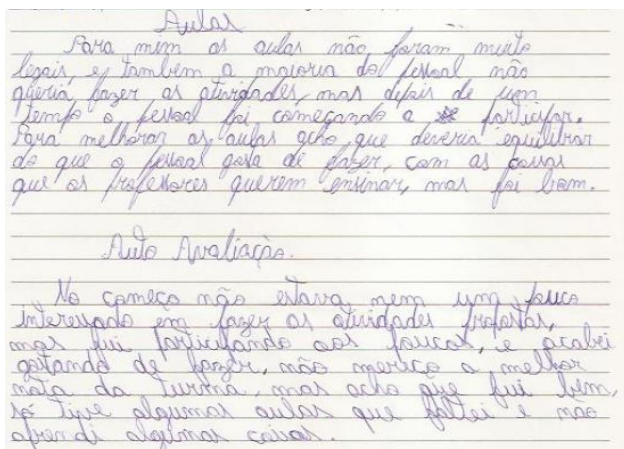 Aulas
Para mim as aulas não foram muito
legais, e também a maioria do pessoal não
queria fazer as atividades, mas depois de um
tempo o pessoal foi começando a participar.
Para melhorar as aulas acho que deveria equilibrar
do que o pessoal gosta de fazer, com as coisas
que os professores querem ensinar, mas foi bom.
Auto Avaliação.
No começo não estava nem um pouco
interessado em fazer as atividades propostas,
mas fui participando aos poucos, e acabei
gostando de fazer, não mereço a melhor
nota da turma, mas acho que fui bem,
só tive algumas aulas que faltei e não
aprendi algumas coisas.